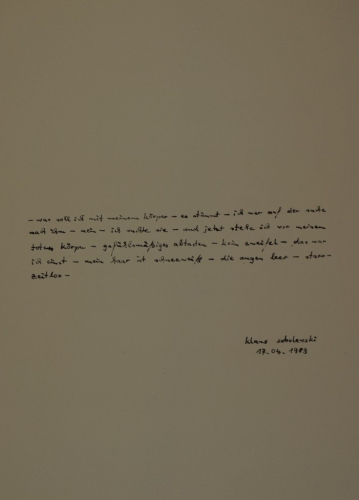 – was soll ich mit meinem körper – es stimmt – ich war auf der suche
nach ihm – nein – ich suchte sie – und jetzt stehe ich vor meinem
toten körper – gefühlsmäßiges abtasten – kein zweifel – das war
ich einst – mein haar ist schneeweiß – die augen leer – starr –
zeitlos –
klaus sobolewski
17.04.1989